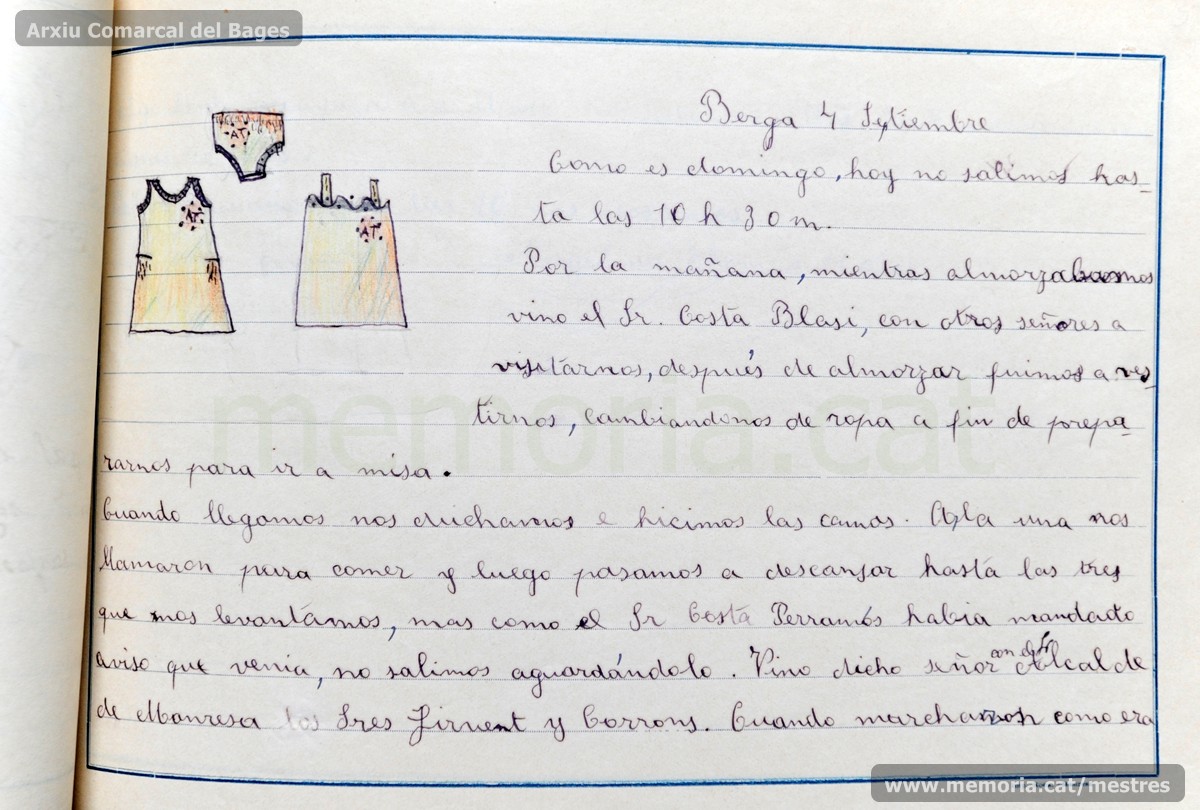 Arxiu Comarcal del Bages
Berga 4 Setiembre
Como es domingo, hoy no salimos has-
ta las 10 h 30 m.
AT
AT
AT
Por la mañana, mientras almorzabamos
vino el Sr. Costa Blasi, con otros señores a
visitarnos, después de almorzar fuimos a ves-
tirnos, cambiandonos de ropa a fin de prepa-
rarnos para ir a misa.
Cuando llegamos nos duchamos e hicimos las camas. A la una nos
llamaron para comer y luego pasamos a descansar hasta las tres
que nos levantámos, mas como el Sr Costa Perramós habia mandado
aviso que venia, no salimos aguardándolo. Vino dicho señor con el Sr Alcalde
de Manresa los Sres y Corrons. Cuando marcharon como era
memoria.cat
www.memoria.cat/mestres